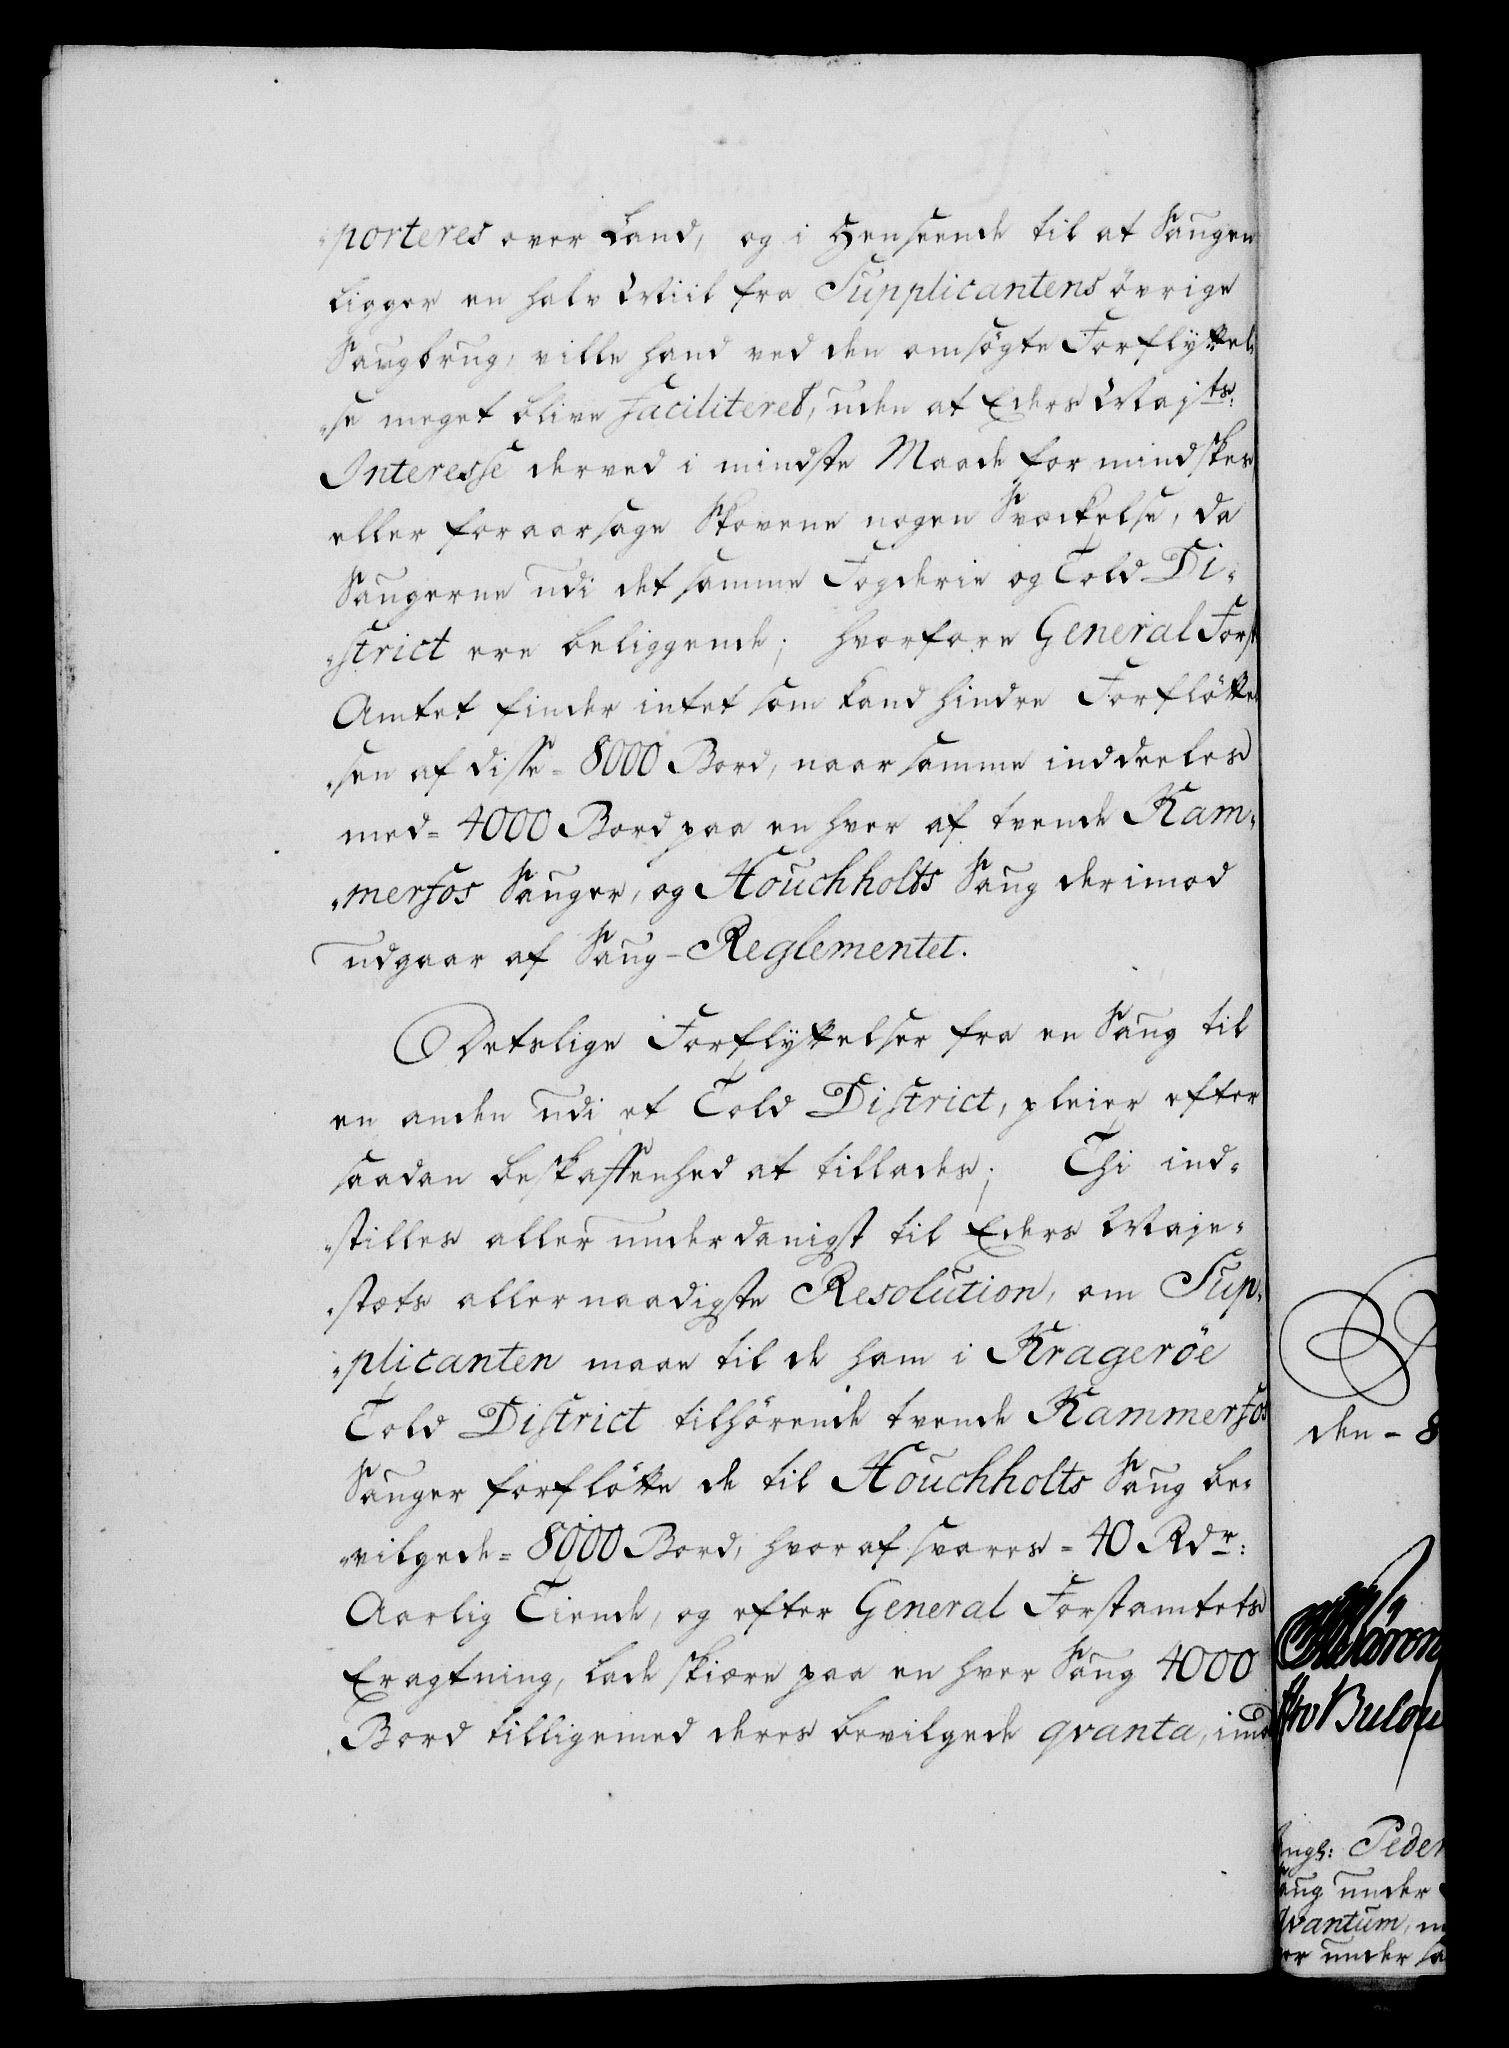 „porteres over Land, og i Henseende til at Saugen
ligger en halv Miil fra Supplicantens övrige
Saugbrug, ville hand ved den omsögte Forflyttel„
„se meget blive faciliteret, uden at Eders Majts:
Interesse derved i mindste Maade formindskes
eller foraarsage Skovene nogen Svækkelse, da
Saugerne udi det samme Fogderie og Told Di„
„strict ere beliggende; hvorfore General Forst
Amtet finder intet som kand hindre Forflötte
„sen af disse = 8000 Bord, naar samme inddeeles
med = 4000 Bord paa en hver af tvende Kam„
„merfos Sauger, og Houchholts Saug derimod
udgaar af Saug-Reglementet.
Detslige Forflyttelser fra en Saug til
en anden udi et Told District, pleier efter
saadan beskaffenhed at tillades; Thi ind„
„stilles allerunderdanigst til Eders Maje„
„stæts allernaadigste Resolution, om Sup„
„plicanten maae til de ham i Krageröe
Told District tilhörende tvende Kammerfos
Sauger forflötte de til Houchholts Saug be„
„vilgede = 8000 Bord, hvoraf svares = 40 Rdr:
Aarlig Tiende, og efter General Forstamtets
Eragtning, lade skiære paa en hver Saug 4000
Bord tilligemed deres bevilgede qvanta, imod
den - 8
Bulou
Peder
aug under
qvantum,
er under sa